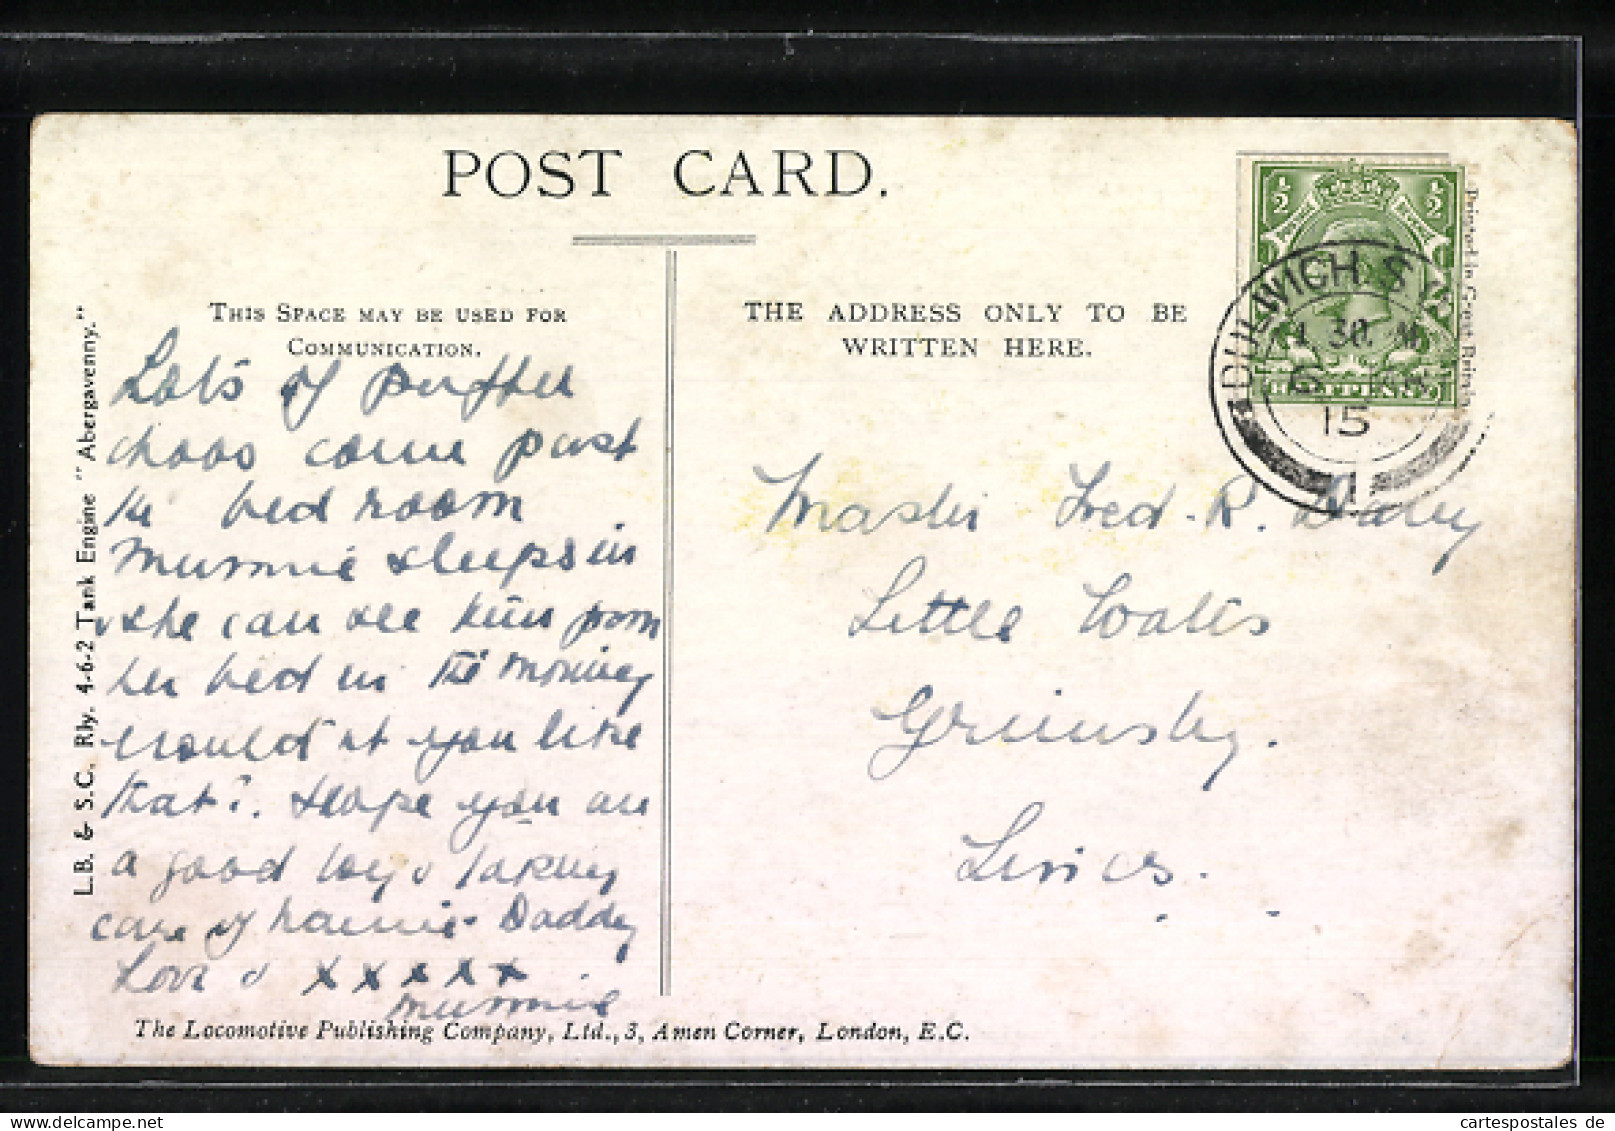 POST CARD.
THIS SPACE MAY BE USED FOR
COMMUNICATION.
Lots of puffer
choos come past
the bed room
Mummie sleeps in
& she can see him from
her bed in the morning
would nt you like
that? Hope you are
a good boy & taking
care of Nannie & Daddy
Love & x x x x x
Mummie
THE ADDRESS ONLY TO BE
WRITTEN HERE.
Master Fred. R.
Little Coates
Grimsby.
Lincs.
½ ½
HALFPENNY
DULWICH S.
1 30. M
15
1
Printed in Great Britain
L.B. & S.C. Rly. 4-6-2 Tank Engine "Abergavenny."
The Locomotive Publishing Company, Ltd., 3, Amen Corner, London, E.C.
cartespostales de